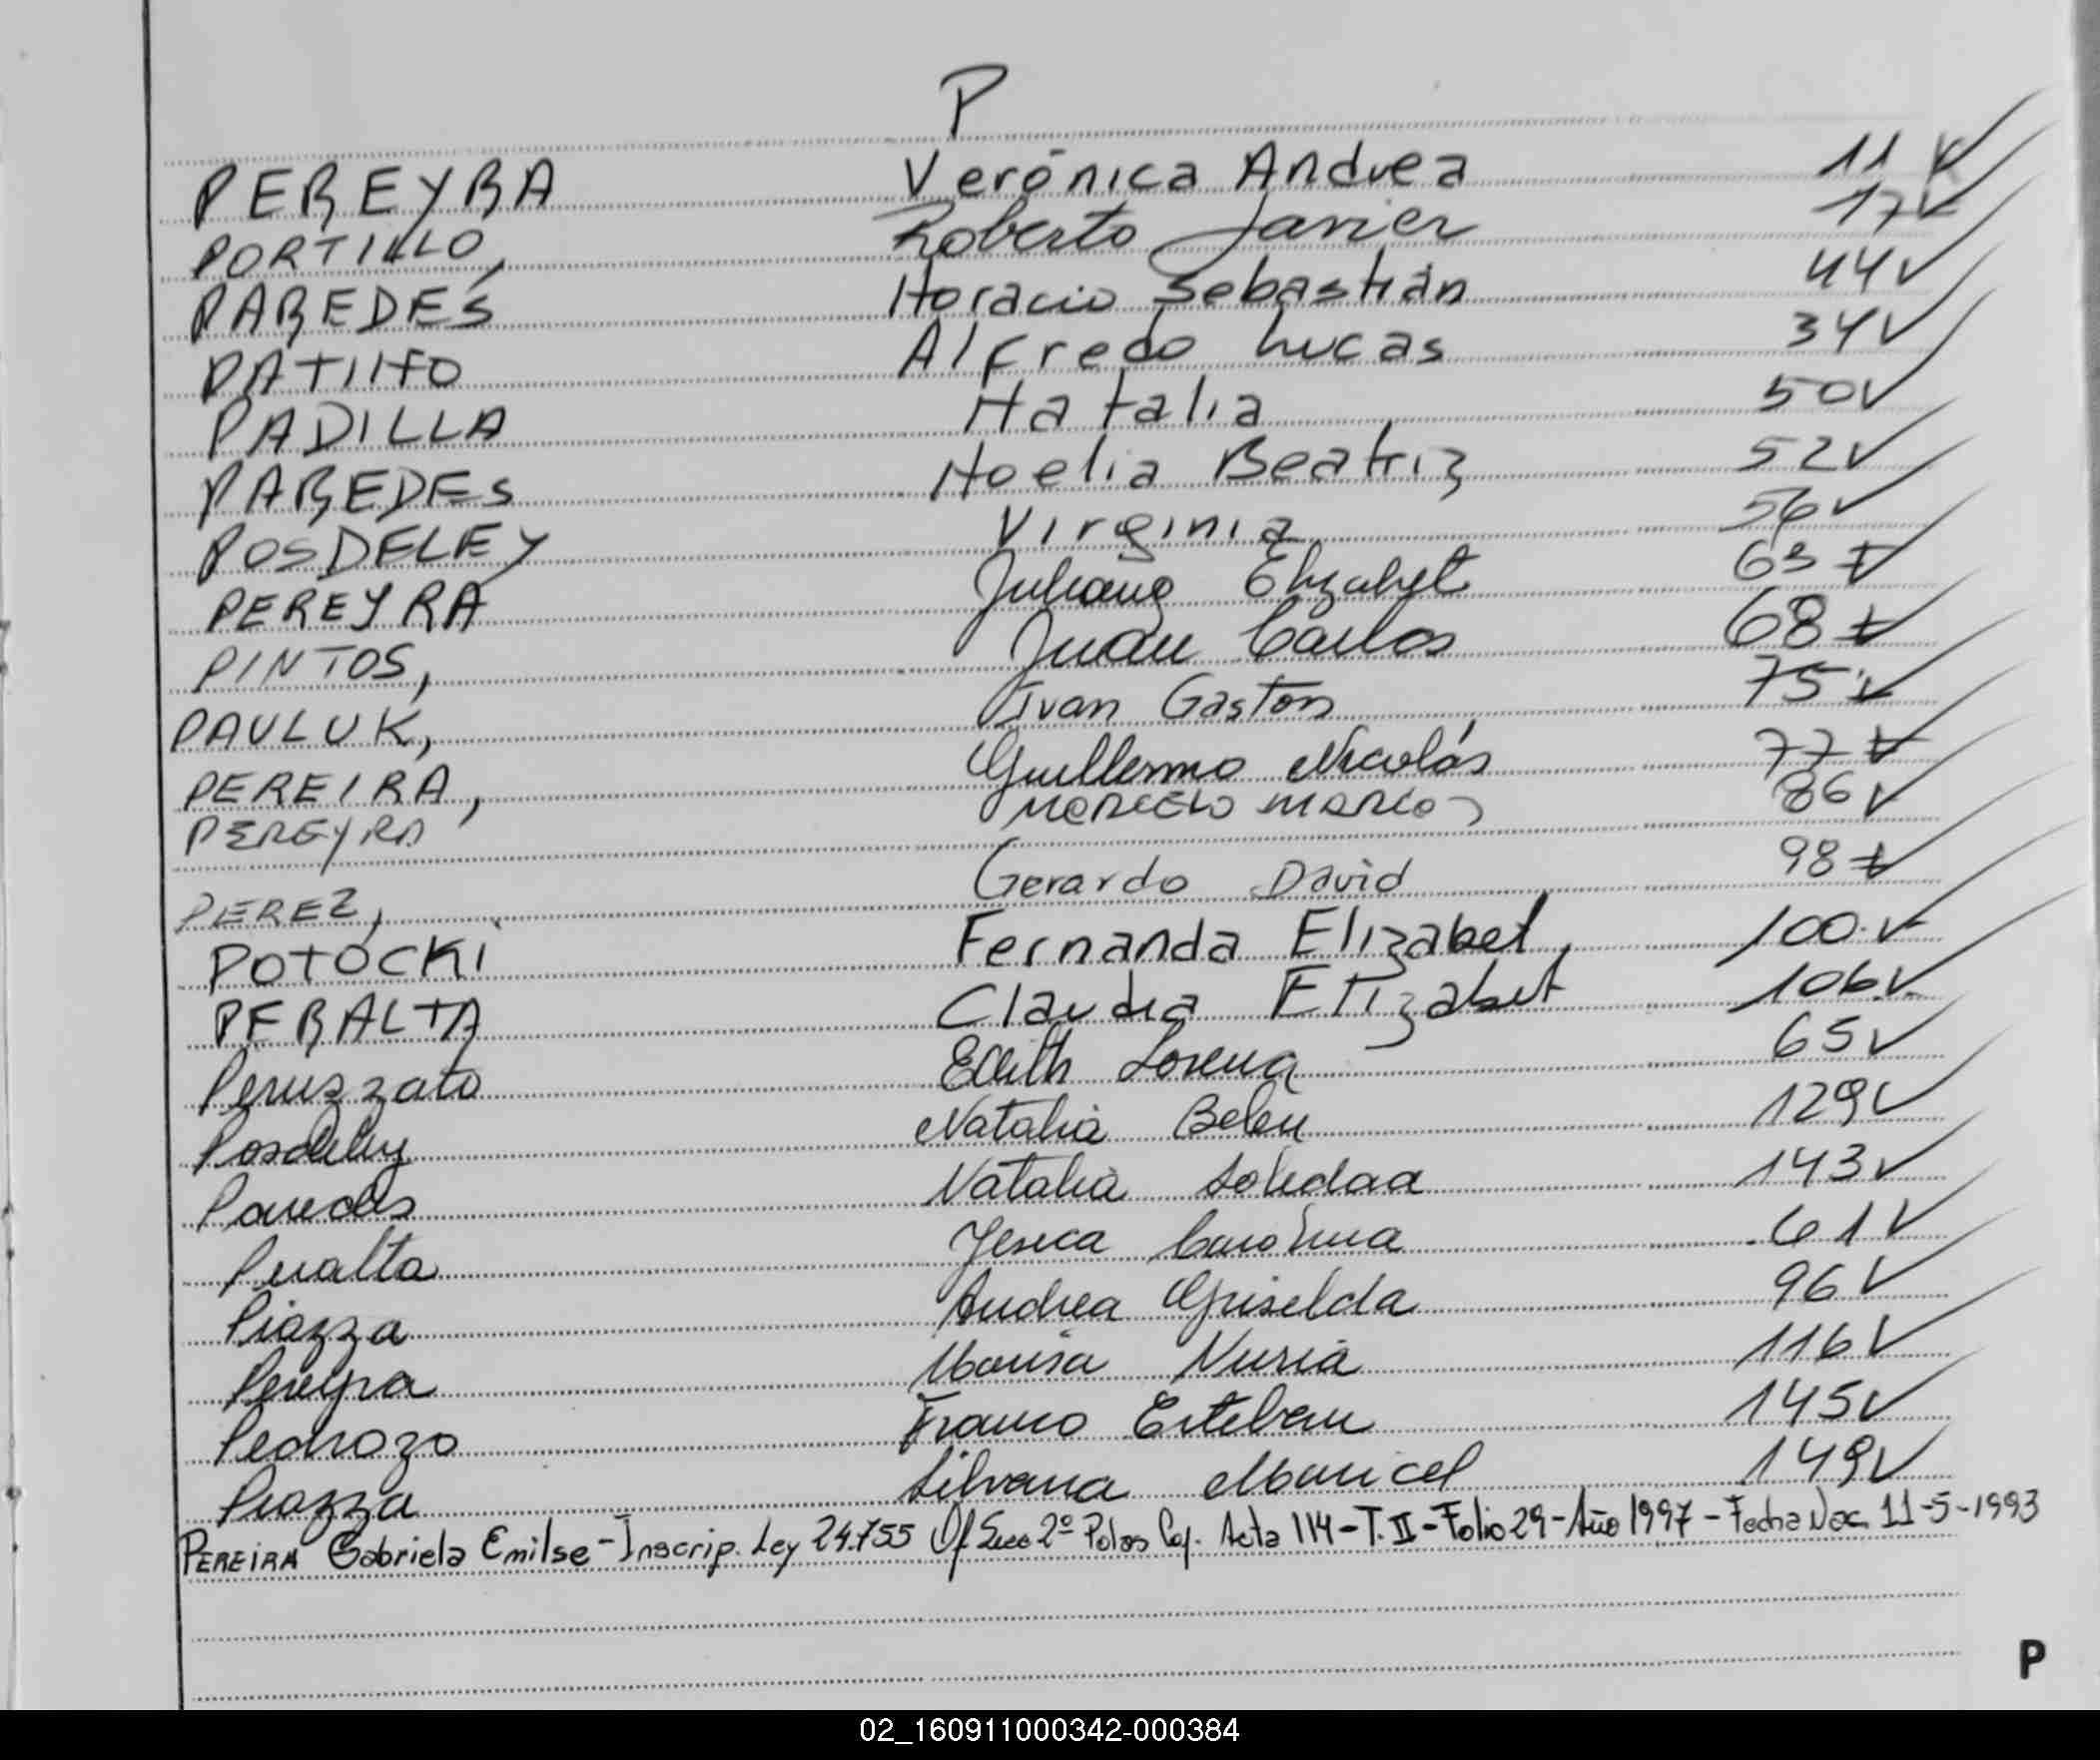 P
PEREYRA Verónica Andrea 11 V
PORTILLO, Roberto Javier 17 V
PAREDES Horacio Sebastián 44 V
PATIÑO Alfredo Lucas 34 V
PADILLA Natalia 50 V
PAREDES Noelia Beatriz 52 V
POSDELEY Virginia 56 V
PEREYRA Juliana Elizabet 63 V
PINTOS, Juan Carlos 68 V
PAVLUK, Ivan Gaston 75 V
PEREIRA, Guillermo Nicolás 77 V
PEREYRA Marcelo Marcos 86 V
PEREZ, Gerardo David 98 V
POTOCKI Fernanda Elizabet 100 V
PERALTA Claudia Elizabet 106 V
Peruzzato Edith Lorena 65 V
Posdeley Natalia Belén 129 V
Paredes Natalia Soledad 143 V
Peralta Jesica Carolina 61 V
Piazza Andrea Griselda 96 V
Pereyra Marisa Nuria 116 V
Pedrozo Franco Esteban 145 V
Piazza Silvana Maricel 149 V
PEREIRA Gabriela Emilse - Inscrip. Ley 24.755 Of Secc 2º Acta 114 - T. II - Folio 29 - Año 1997 - Fecha Nac 11-5-1993
P
02_160911000342-000384